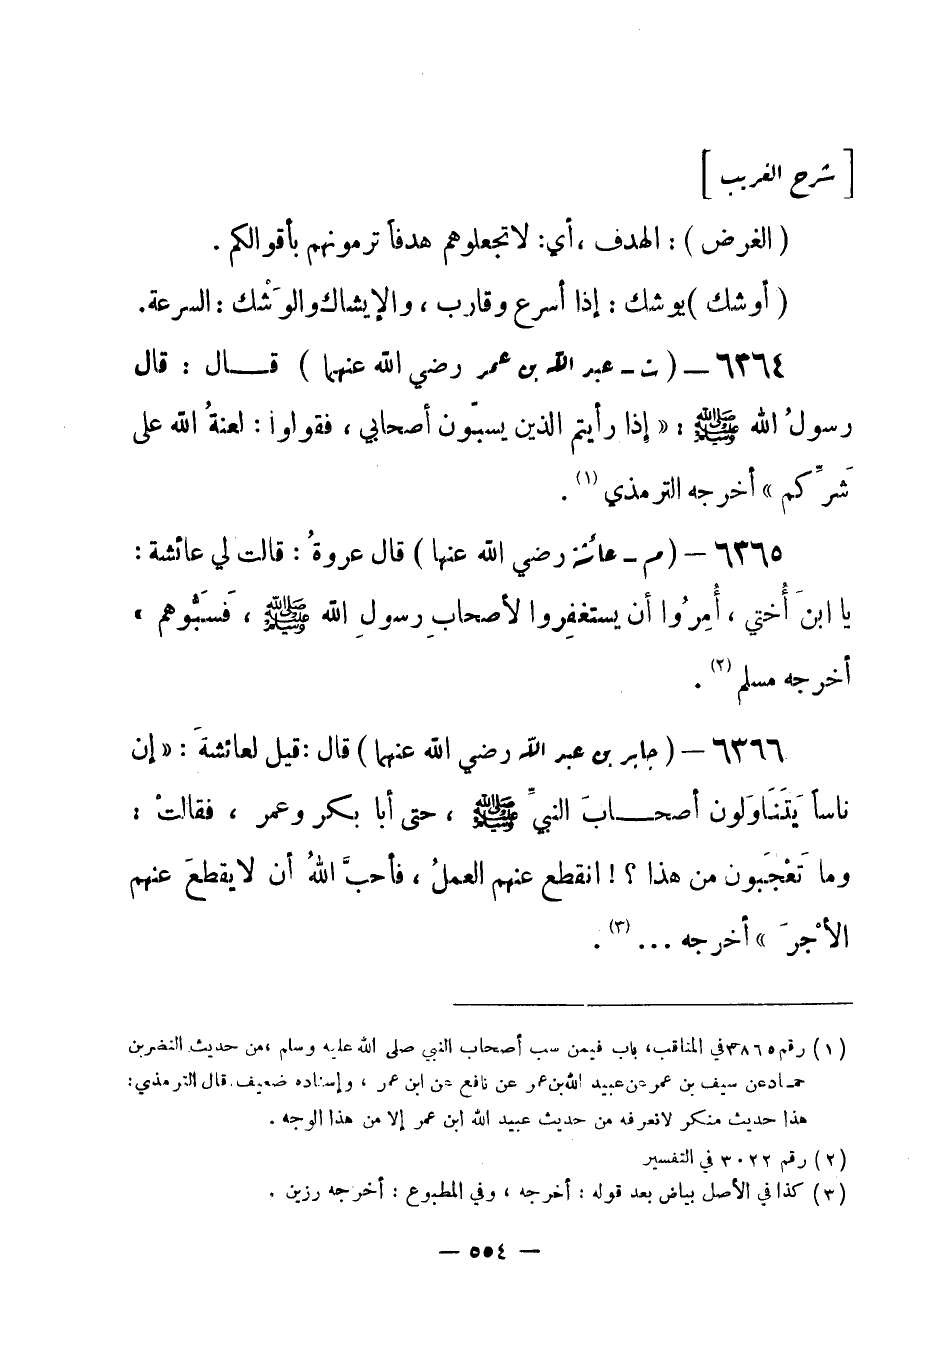 [ شرح الغريب ]
( الغرض ) : الهدف ، أي: لا تجعلوهم هدفاً ترمونهم بأقوالكم .
( أوشك )يوشك : إذا أسرع وقارب ، والإيشاك والوَشْك : السرعة.
٦٣٦٤ – ( ت – عبد الله بن عمر رضي الله عنهما ) قــال : قال
رسولُ الله ﷺ : « إذا رأيتم الذين يسبّون أصحابي ، فقولوا : لعنةُ الله على
شَرِّكم » أخرجه الترمذي (١) .
٦٣٦٥ – ( م – عائشة رضي الله عنها ) قال عروةُ : قالت لي عائشة :
يا ابنَ أُختي ، أُمِرُوا أن يستغفِروا لأصحابِ رسولِ الله ﷺ ، فَسَبُّوهم »
أخرجه مسلم (٢) .
٦٣٦٦ – ( جابر بن عبد الله رضي الله عنهما ) قال :قيل لعائشةَ : « إن
ناساً يَتَنَاوَلون أصحــابَ النبيِّ ﷺ ، حتى أبا بكر وعمر ، فقالتْ :
وما تَعْجَبون من هذا ؟! انقطع عنهم العملُ ، فأحبَّ اللهُ أن لا يقطعَ عنهم
الأجْرَ » أخرجه ... (٣) .
(١) رقم ٣٨٦٥ في المناقب، باب فيمن سب أصحاب النبي صلى الله عليه وسلم ،من حديث النضر بن
حماد عن سيف بن عمر عن عبيد الله بن عمر عن نافع عن ابن عمر ، وإسناده ضعيف. قال الترمذي:
هذا حديث منكر لا نعرفه من حديث عبيد الله ابن عمر إلا من هذا الوجه .
(٢) رقم ٣٠٢٢ في التفسير
(٣) كذا في الأصل بياض بعد قوله : أخرجه ، وفي المطبوع : أخرجه رزين .
– ٥٥٤ –